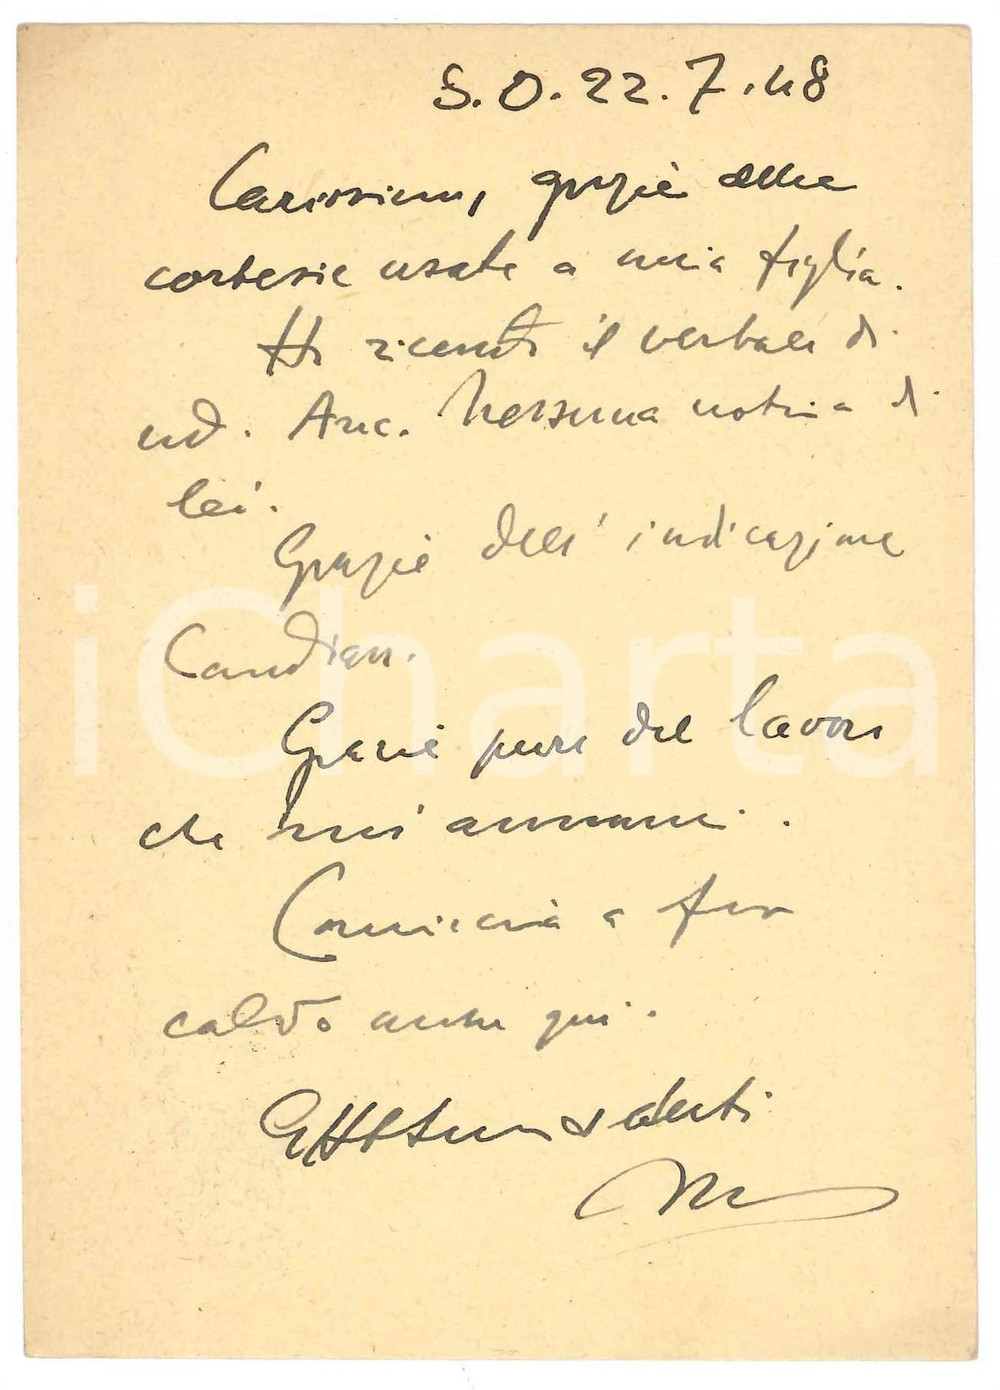 S.O. 22.7.48
Carissimo, grazie delle
cortesie usate a mia figlia.
Ho ricevuto il verbale di
ud. Anc. Nessuna notizia di
lei.
Grazie dell'indicazione
Candian.
Grazie pure del lavoro
che mi annunci.
Comincia a far
caldo anche qui.
Affettuosi saluti
iCharta